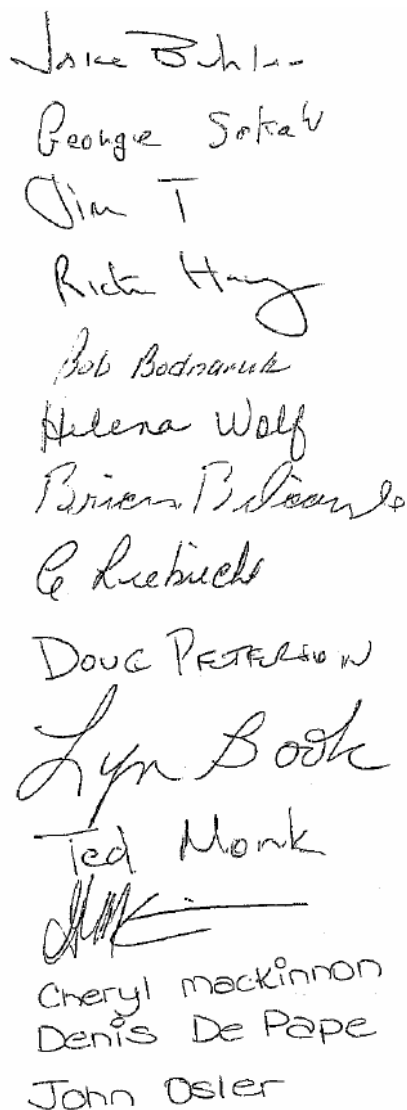 Jake Buhler
George Sokal
Jim T
Rick
Bob Bodnaruk
Helena Wolf
Brian
C
Doug Peterson
Lyn Book
Ted Monk
Cheryl Mackinnon
Denis De Pape
John Osler